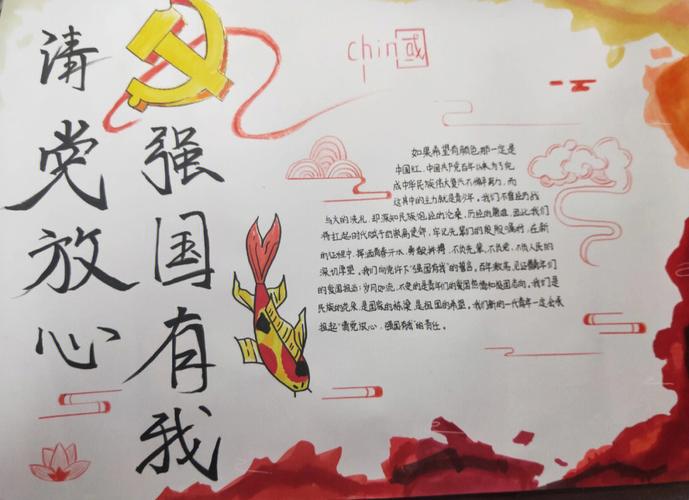 请党放心
强国有我
chin国
如果希望有颜色,那一定是
中国红,中国共产党百年以来为了完
成中华民族伟大复兴不懈努力,而
这其中的主力就是青少年。我们不曾经历战
火的洗礼,却深知民族
历经的磨难,因此我们
将扛起时代赋予的崇高使命,牢记先辈们的殷殷嘱托,在新
的征程中,挥洒青春汗水,勇毅拼搏,不负先辈,不负党,不负人民的
深切厚望。我们向党许下“强国有我”的誓言,百年
青年们
的爱国担当;岁月如流,不变的是青年们的爱国热情和报国志向。我们是
民族的花朵,是国家的栋梁,是祖国的希望。我们新的一代青年一定会承
担起“请党放心,强国有我”的责任。